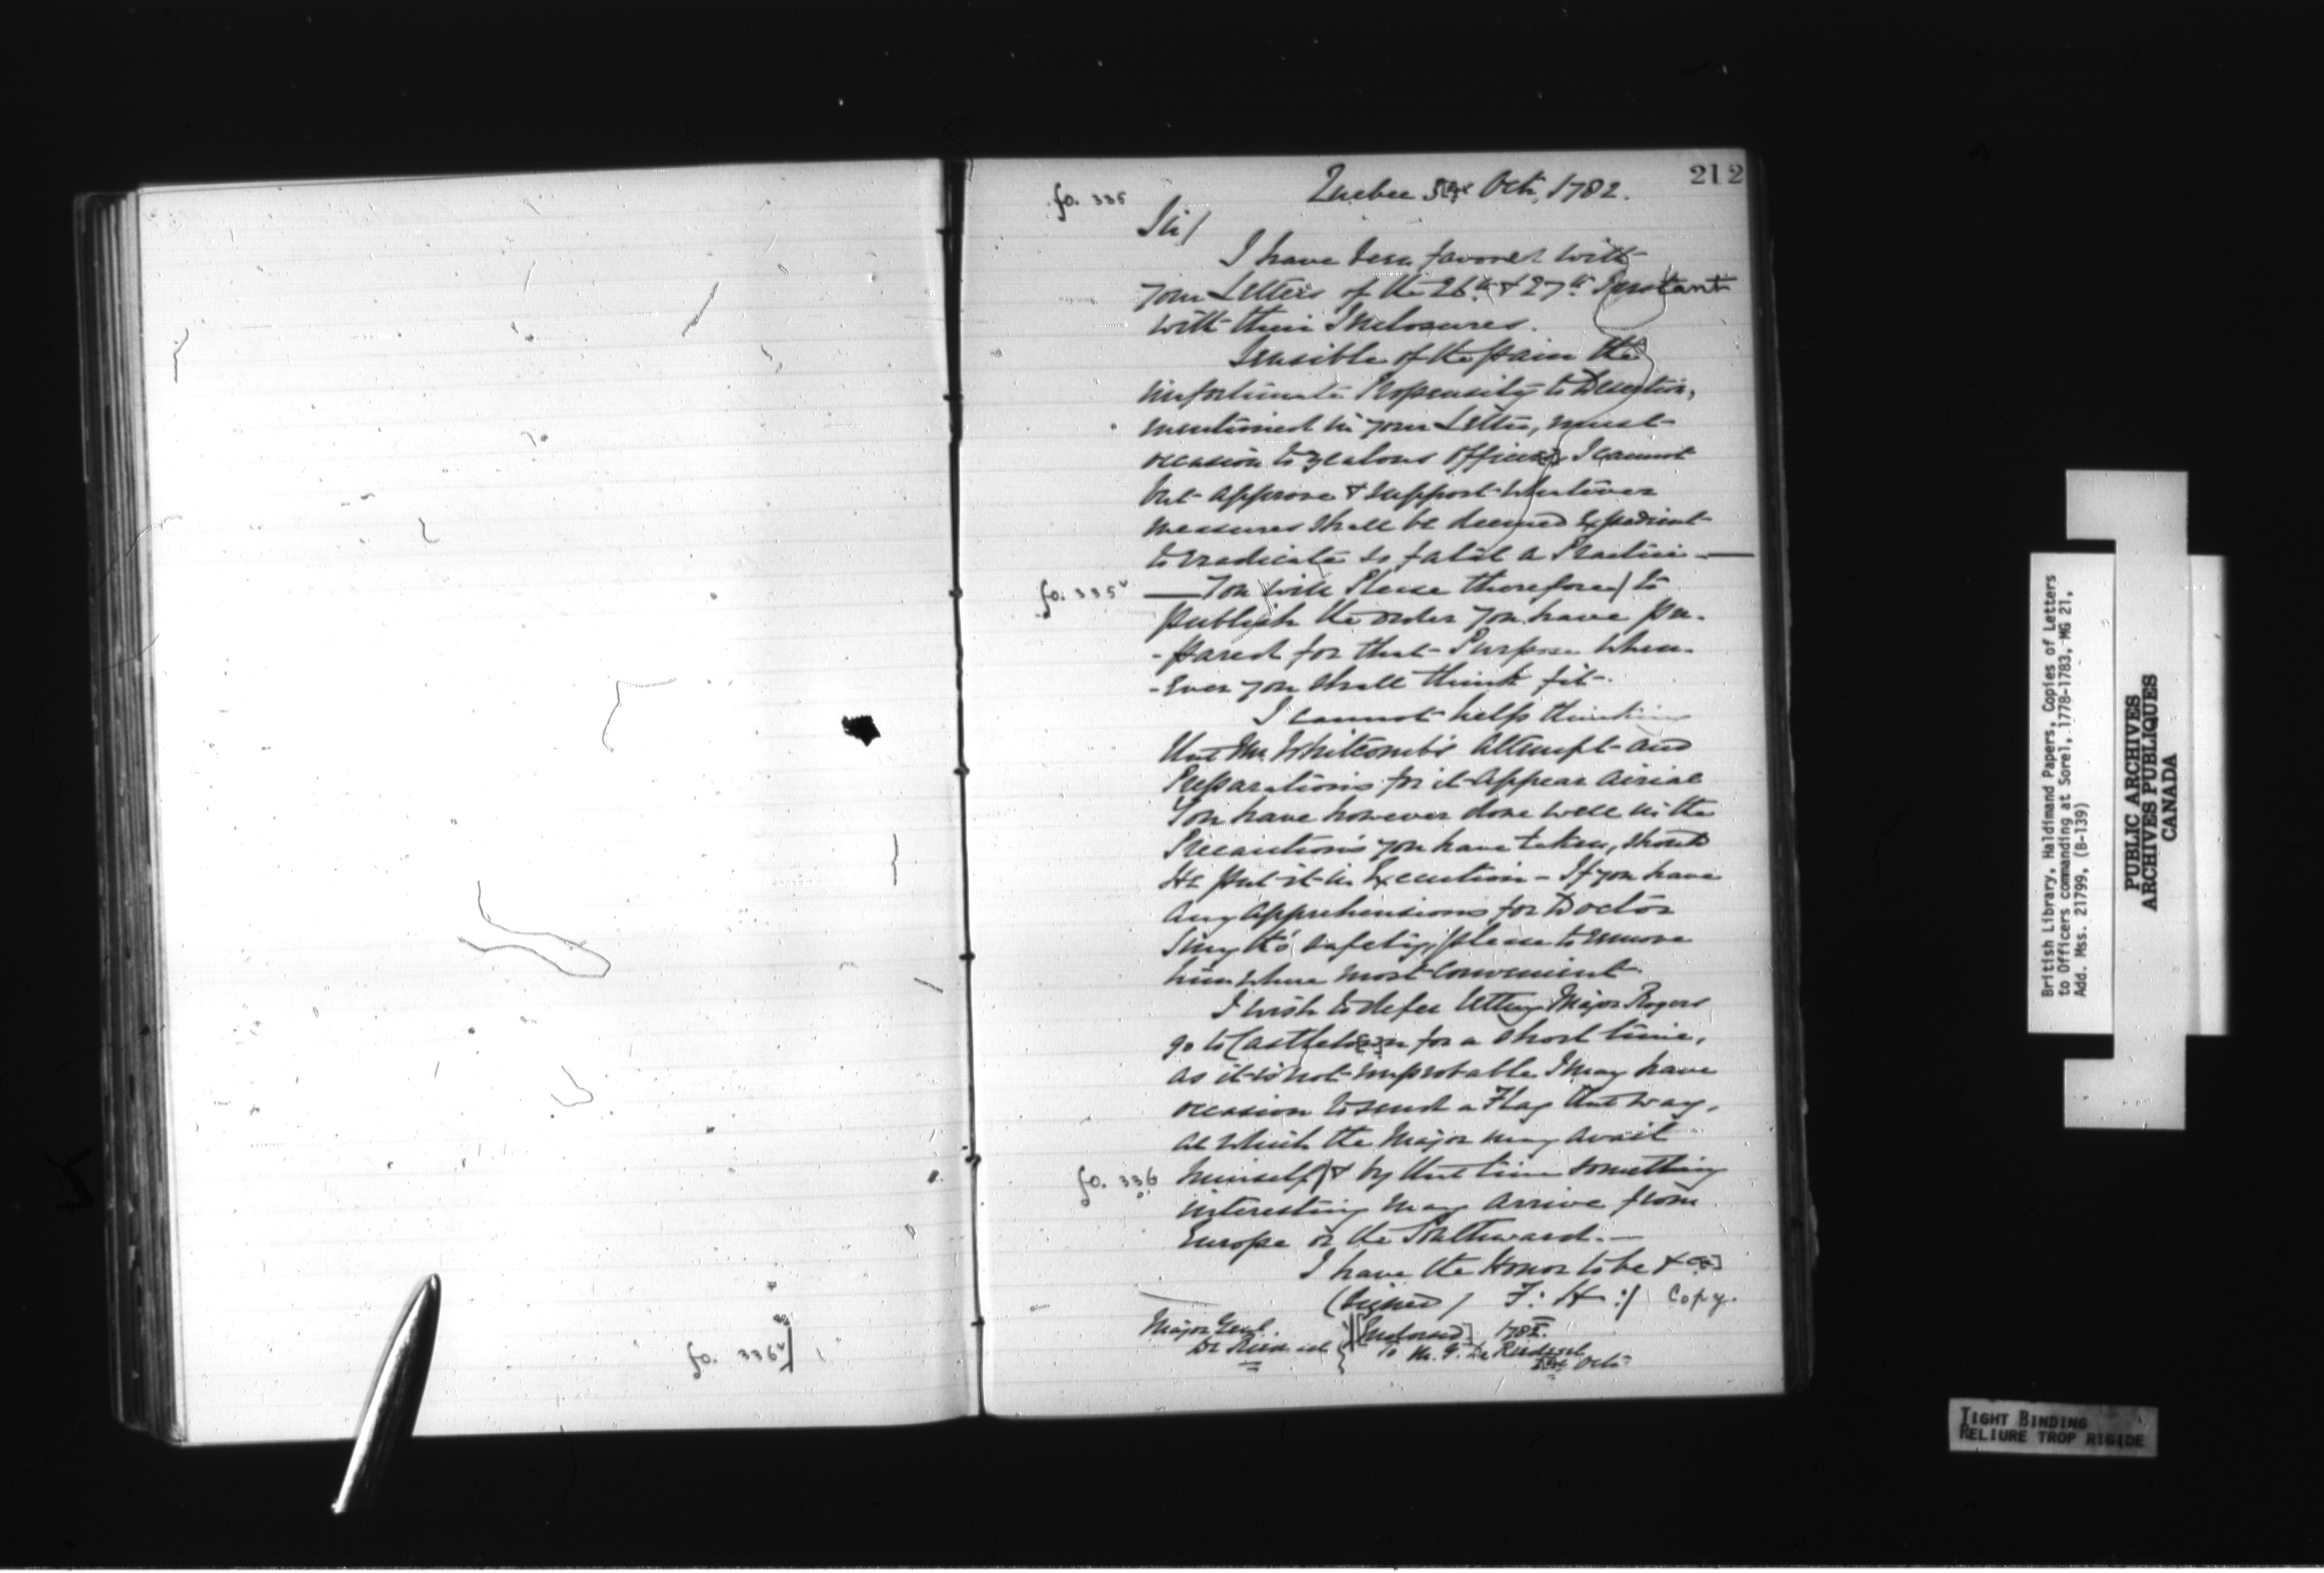 212
fo. 335
Quebec Oct, 1782.
Sir/
I have been favored with
your Letters of the 26th & 27th Instant
with their Inclosures.
Sensible of the pain the
unfortunate Propensity to Desertion,
mentioned in your Letter, must
occasion to zealous Officers I cannot
but approve & support whatever
measures shall be deemed Expedient
to eradicate so fatal a Practice —
fo. 335v
— You will Please therefore to
publish the order you have pre-
-pared for that Purpose when-
-Ever you shall think fit.
I cannot help thinking
that Mr. Whitcomb's attempt and
Preparations for it appear airial
You have however done well in the
Precautions you have taken, should
He put it in Execution - If you have
any apprehensions for Doctor
Smyth's safety, please to remove
him where most convenient
I wish to defer letting Major Rogers
go to Castletown for a short time,
as it is not improbable I may have
occasion to send a Flag that way,
at which the Major may avail
fo. 336
himself & by that time something
interesting may arrive from
Europe or the Southward. —
I have the Honor to be &c
(signed) F: H :/ Copy.
Major Genl.
De Riedesel
[Endorsed] 1782.
To M. G. De Riedesel
Octr
fo. 336v
British Library, Haldimand Papers, Copies of Letters
to Officers commanding at Sorel, 1778-1783, MG 21,
Add. Mss. 21799, (B-139)
PUBLIC ARCHIVES
ARCHIVES PUBLIQUES
CANADA
TIGHT BINDING
RELIURE TROP RIGIDE